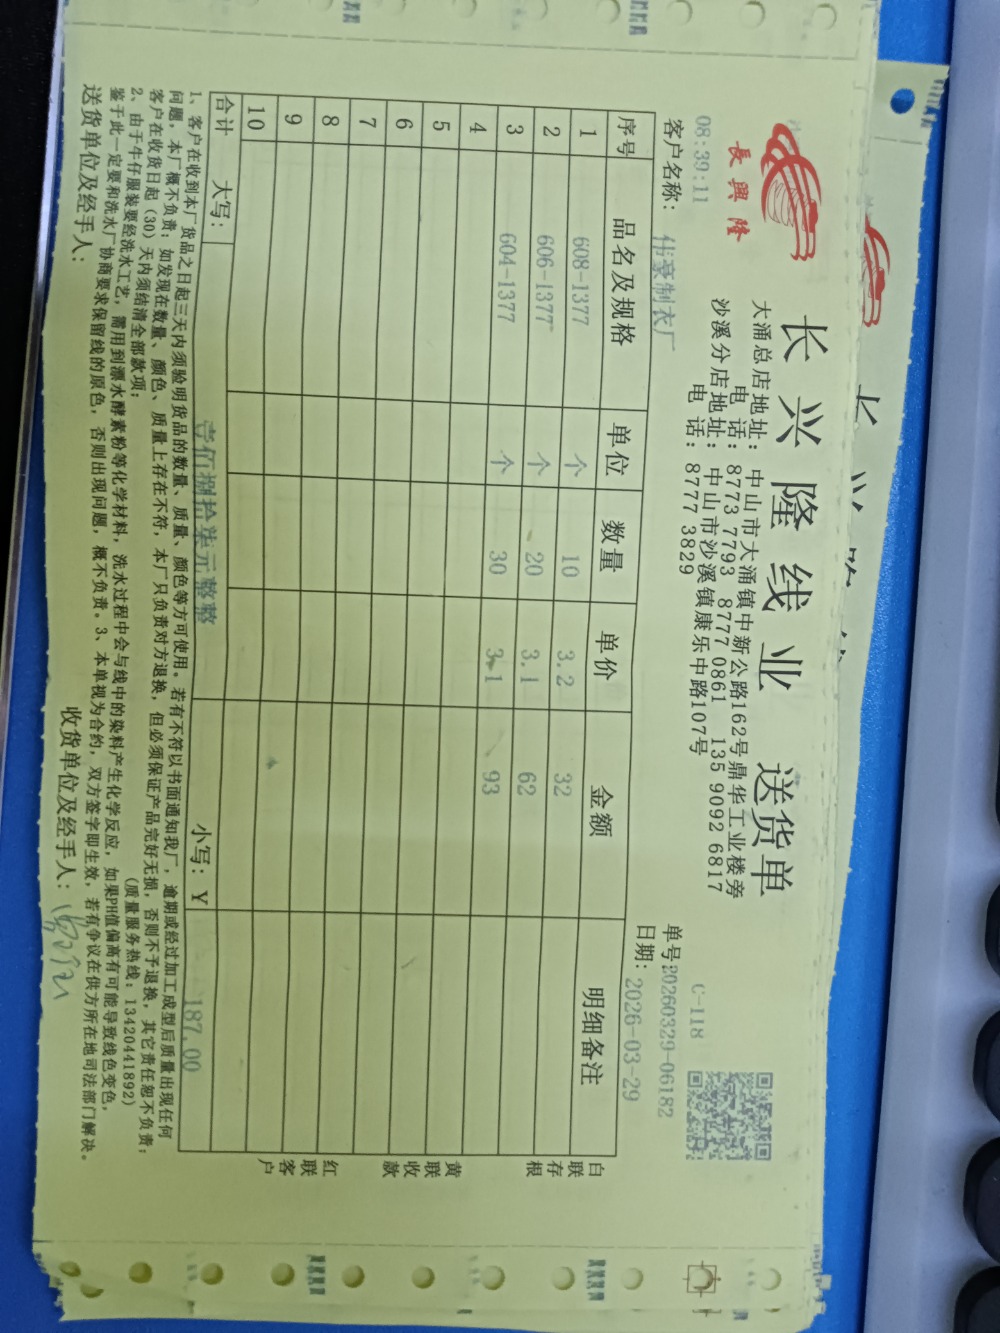 長興隆
长兴隆线业 送货单
大涌总店地址：中山市大涌镇中新公路162号鼎华工业楼旁
电 话：8773 7793 8777 0861 135 9092 6817
沙溪分店地址：中山市沙溪镇康乐中路107号
电 话：8777 3829
C-118
08:39:11
单号:20260329-06182
客户名称： 伟豪制衣厂
日期：2026-03-29
序号 品名及规格 单位 数量 单价 金额 明细备注
1 608-1377 个 10 3.2 32
2 606-1377 个 20 3.1 62
3 604-1377 个 30 3.1 93
4
5
6
7
8
9
10
合计 大写： 壹佰捌拾柒元整整 小写：￥ 187.00
白联存根
黄联收款
红联客户
1、客户在收到本厂货品之日起三天内须验明货品的数量、质量、颜色等方可使用。若有不符以书面通知我厂，逾期或经过加工成型后质量出现任何
问题，本厂概不负责；如发现在数量、颜色、质量上存在不符，本厂只负责对方退换，但必须保证产品完好无损，否则不予退换，其它责任恕不负责；
客户在收货日起（30）天内须结清全部款项； （质量服务热线：13420441892）
2、由于牛仔服装要经洗水工艺，需用到漂水酵素粉等化学材料，洗水过程中会与线中的染料产生化学反应，如果PH值偏高有可能导致线色变色，
鉴于此一定要和洗水厂协商要求保留线的原色，否则出现问题，概不负责。3、本单视为合约，双方签字即生效，若有争议在供方所在地司法部门解决。
送货单位及经手人： 收货单位及经手人：